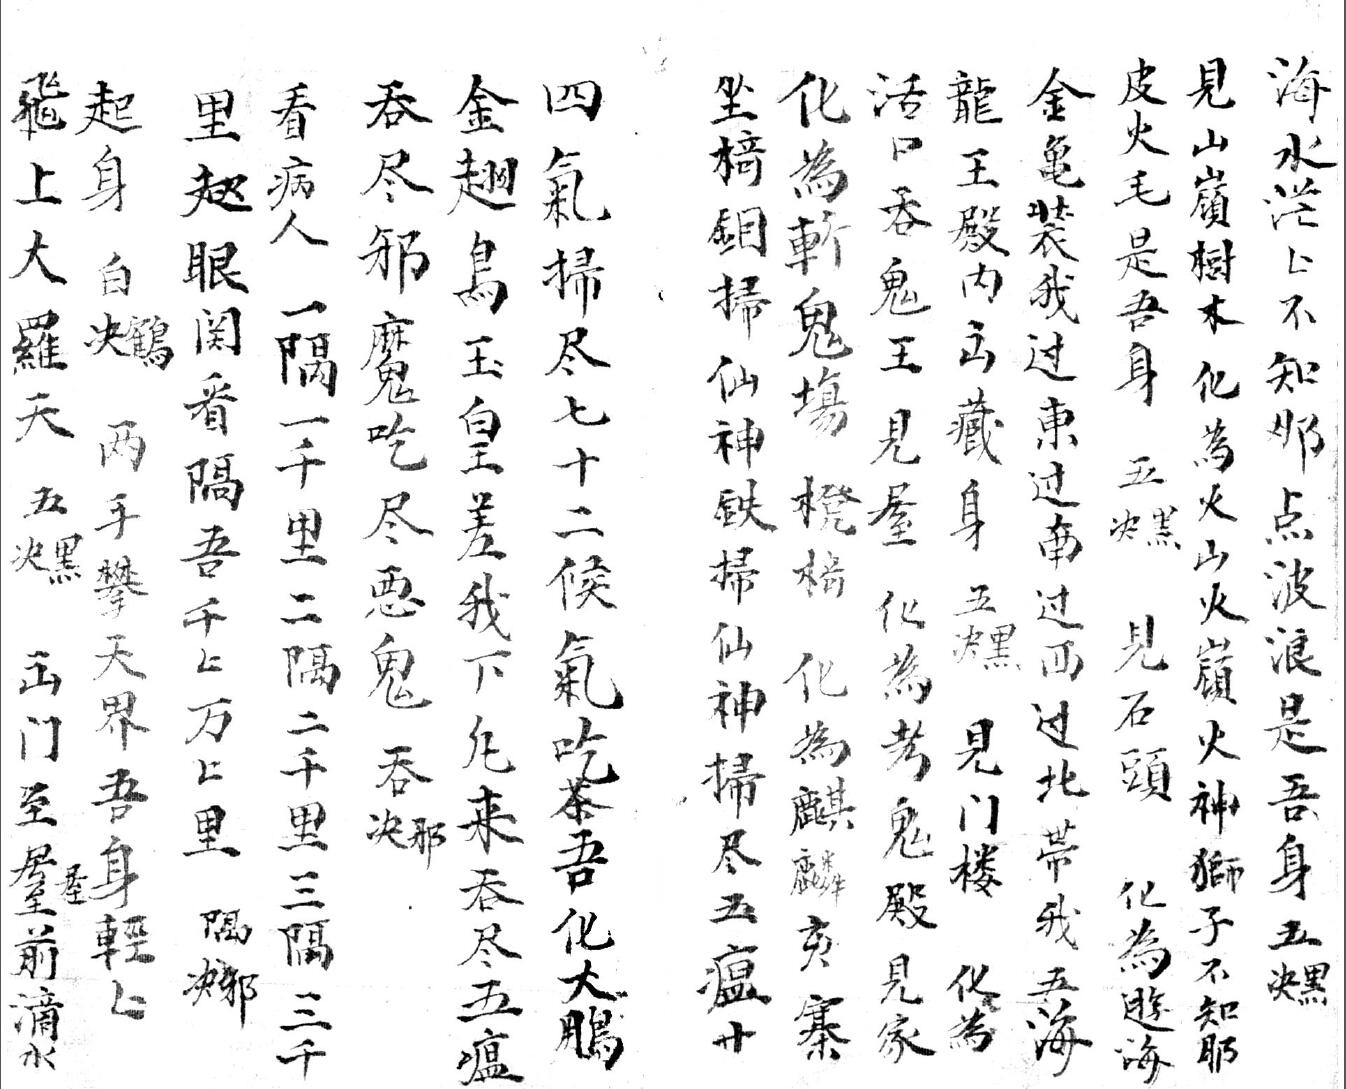 海水茫〻不知那点波浪是吾身五黑决
見山嶺樹木化為火山火嶺火神獅子不知那
皮火毛是吾身 五黑决 見石頭 化為遊海
金亀装我过東过南过西过北帯我五海
龍王殿内藏身 五黑决 見门楼 化為
活口吞鬼王見屋 化為考鬼殿見家
化為斬鬼塲 櫈椅 化為麒麟寨
坐椅掃仙神鉄掃仙神掃尽五瘟廿
四氣掃尽七十二候氣吃茶吾化大鵬
金翅鳥玉皇差我下凢来吞尽五瘟
吞尽邪魔吃尽恶鬼 吞邪决
看病人 一隔一千里二隔二千里三隔三千
里起眼関看隔吾千〻万〻里 隔邪决
起身 白鶴决 两手攀天界吾身輕〻
飛上大羅天 五黑决 出门至屋前滴水